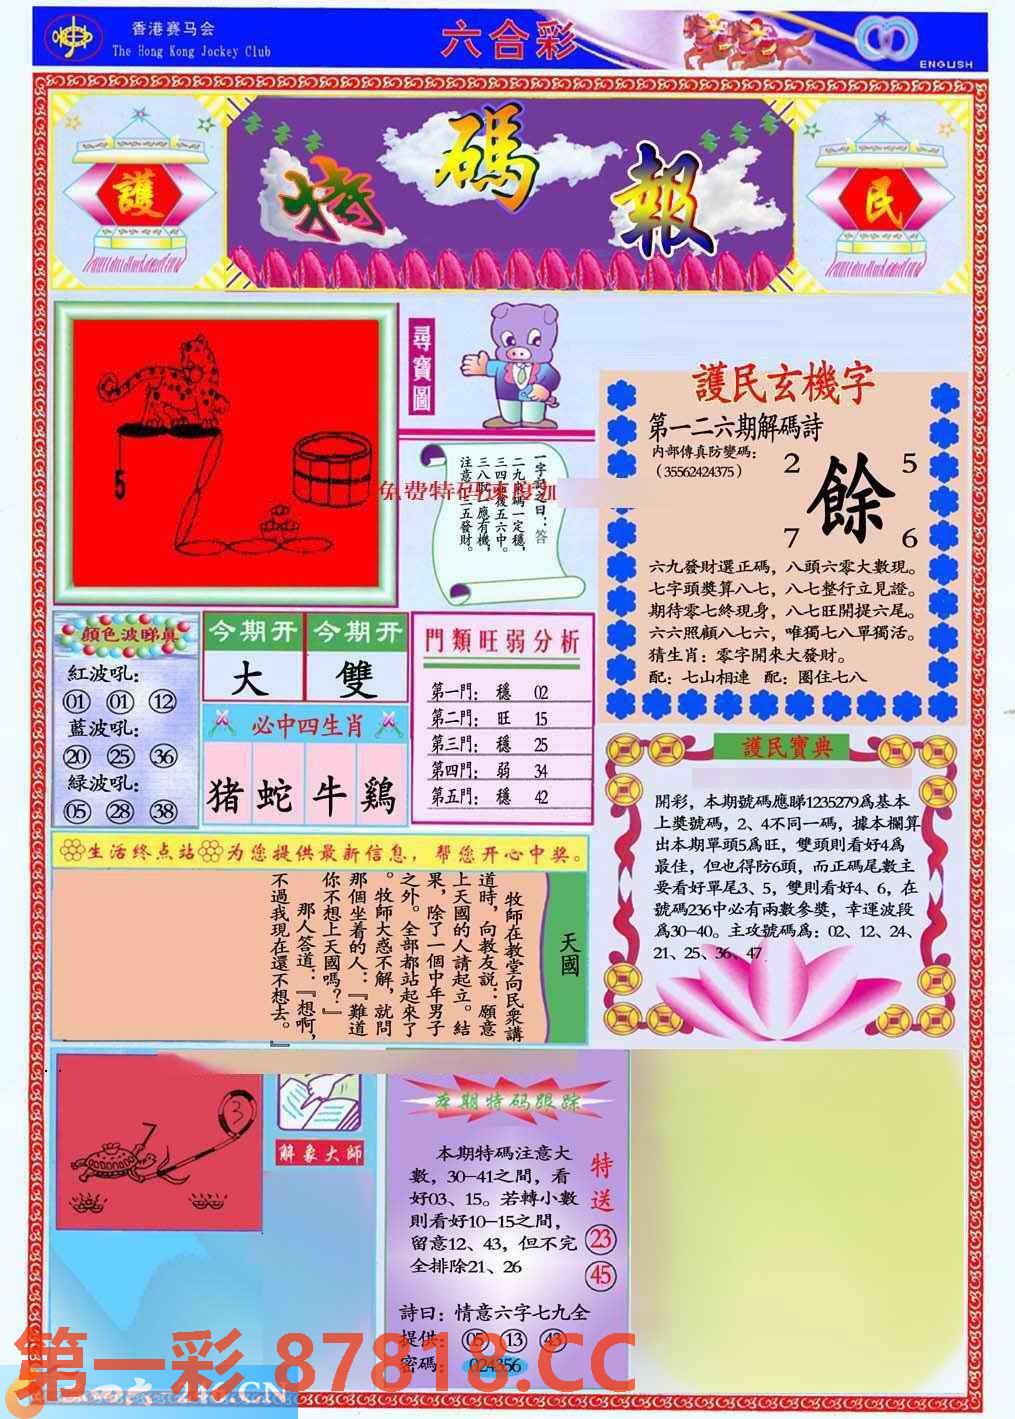 香港赛马会
The Hong Kong Jockey Club
六合彩
ENGLISH
護
特碼報
民
5
尋寶圖
一字記之曰：答
二九數碼一定穩，
三四
後五六中。
三八
應有機，
注意
三五發財。
免费特码
護民玄機字
第一二六期解碼詩
内部傳真防變碼：
（35562424375）
2 5
餘
7 6
六九發財選正碼，八頭六零大數現。
七字頭獎算八七，八七整行立見證。
期待零七終現身，八七旺開提六尾。
六六照顧八七六，唯獨七八單獨活。
猜生肖：零字開來大發財。
配：七山相連 配：圈住七八
顏色波睇真
紅波吼：
01 01 12
藍波吼：
20 25 36
緑波吼：
05 28 38
今期开 今期开
大 雙
必中四生肖
猪 蛇 牛 鷄
門類旺弱分析
第一門： 穩 02
第二門： 旺 15
第三門： 穩 25
第四門： 弱 34
第五門： 穩 42
護民寶典
開彩，本期號碼應睇1235279爲基本
上獎號碼，2、4不同一碼，據本欄算
出本期單頭5爲旺，雙頭則看好4爲
最佳，但也得防6頭，而正碼尾數主
要看好單尾3、5，雙則看好4、6，在
號碼236中必有兩數參獎，幸運波段
爲30—40。主攻號碼爲：02、12、24、
21、25、36、47
生活终点站 为您提供最新信息，帮您开心中奖。
天國
牧师在教堂向民衆講
道時，向教友説：願意
上天國的人請起立。結
果，除了一個中年男子
之外。全部都站起來了
。牧师大惑不解，就問
那個坐着的人：『難道
你不想上天國嗎？』
那人答道：『想啊，
不過我現在還不想去。』
7 3
解象大師
本期特码跟踪
本期特码注意大
數，30—41之間，看
好03、15。若轉小數
則看好10—15之間，
留意12、43，但不完
全排除21、26
特送
23
45
詩曰：情意六字七九全
提供： 05 13 43
密碼： 024356
第一彩 87818.CC
246.CN